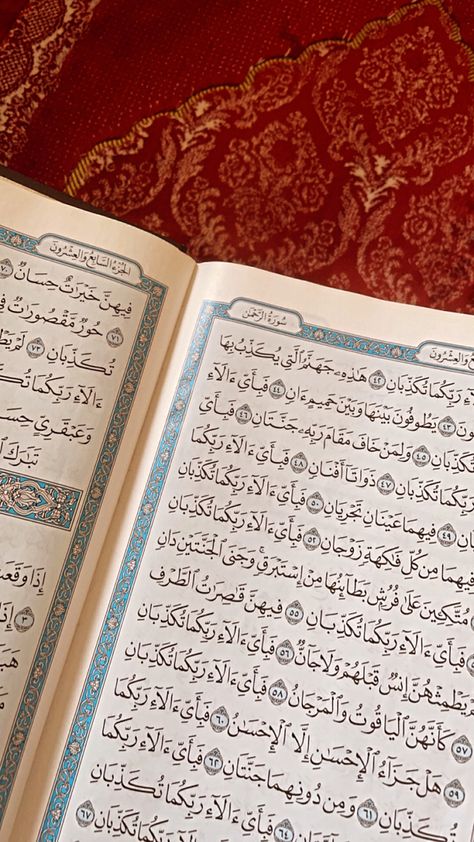 سُورَةُ الرَّحْمَٰن وَالعِشْرُونَ
ءَالَآءِ رَبِّكُمَا تُكَذِّبَانِ ٤٢ هَٰذِهِۦ جَهَنَّمُ ٱلَّتِي يُكَذِّبُ بِهَا
٤٣ يَطُوفُونَ بَيْنَهَا وَبَيْنَ حَمِيمٍ ءَانٍ ٤٤ فَبِأَيِّ ءَالَآءِ
تُكَذِّبَانِ ٤٥ وَلِمَنْ خَافَ مَقَامَ رَبِّهِۦ جَنَّتَانِ ٤٦ فَبِأَيِّ
رَبِّكُمَا تُكَذِّبَانِ ٤٧ ذَوَاتَآ أَفْنَانٍ ٤٨ فَبِأَيِّ ءَالَآءِ رَبِّكُمَا
٤٩ فِيهِمَا عَيْنَانِ تَجْرِيَانِ ٥٠ فَبِأَيِّ ءَالَآءِ رَبِّكُمَا تُكَذِّبَانِ
فِيهِمَا مِن كُلِّ فَٰكِهَةٍ زَوْجَانِ ٥٢ فَبِأَيِّ ءَالَآءِ رَبِّكُمَا تُكَذِّبَانِ
مُتَّكِـِٔينَ عَلَىٰ فُرُشٍۭ بَطَآئِنُهَا مِنْ إِسْتَبْرَقٍ وَجَنَى ٱلْجَنَّتَيْنِ دَانٍ
فَبِأَيِّ ءَالَآءِ رَبِّكُمَا تُكَذِّبَانِ ٥٥ فِيهِنَّ قَٰصِرَٰتُ ٱلطَّرْفِ
يَطْمِثْهُنَّ إِنسٌ قَبْلَهُمْ وَلَا جَآنٌّ ٥٦ فَبِأَيِّ ءَالَآءِ رَبِّكُمَا تُكَذِّبَانِ
٥٧ كَأَنَّهُنَّ ٱلْيَاقُوتُ وَٱلْمَرْجَانُ ٥٨ فَبِأَيِّ ءَالَآءِ رَبِّكُمَا تُكَذِّبَانِ
٥٩ هَلْ جَزَآءُ ٱلْإِحْسَٰنِ إِلَّا ٱلْإِحْسَٰنُ ٦٠ فَبِأَيِّ ءَالَآءِ رَبِّكُمَا
تُكَذِّبَانِ ٦١ وَمِن دُونِهِمَا جَنَّتَانِ ٦٢ فَبِأَيِّ ءَالَآءِ رَبِّكُمَا
٦٤ فَبِأَيِّ ءَالَآءِ رَبِّكُمَا تُكَذِّبَانِ
رَبِّكُمَا تُكَذِّبَانِ ٦٧
الجُزْءُ السَّابِعُ وَالعِشْرُونَ
فِيهِنَّ خَيْرَٰتٌ حِسَانٌ ٧٠
٧١ حُورٌ مَّقْصُورَٰتٌ
تُكَذِّبَانِ ٧٣
ءَالَآءِ رَبِّكُمَا
وَعَبْقَرِيٍّ
تَبَٰرَكَ
إِذَا وَقَعَتِ
٣ إِذَا